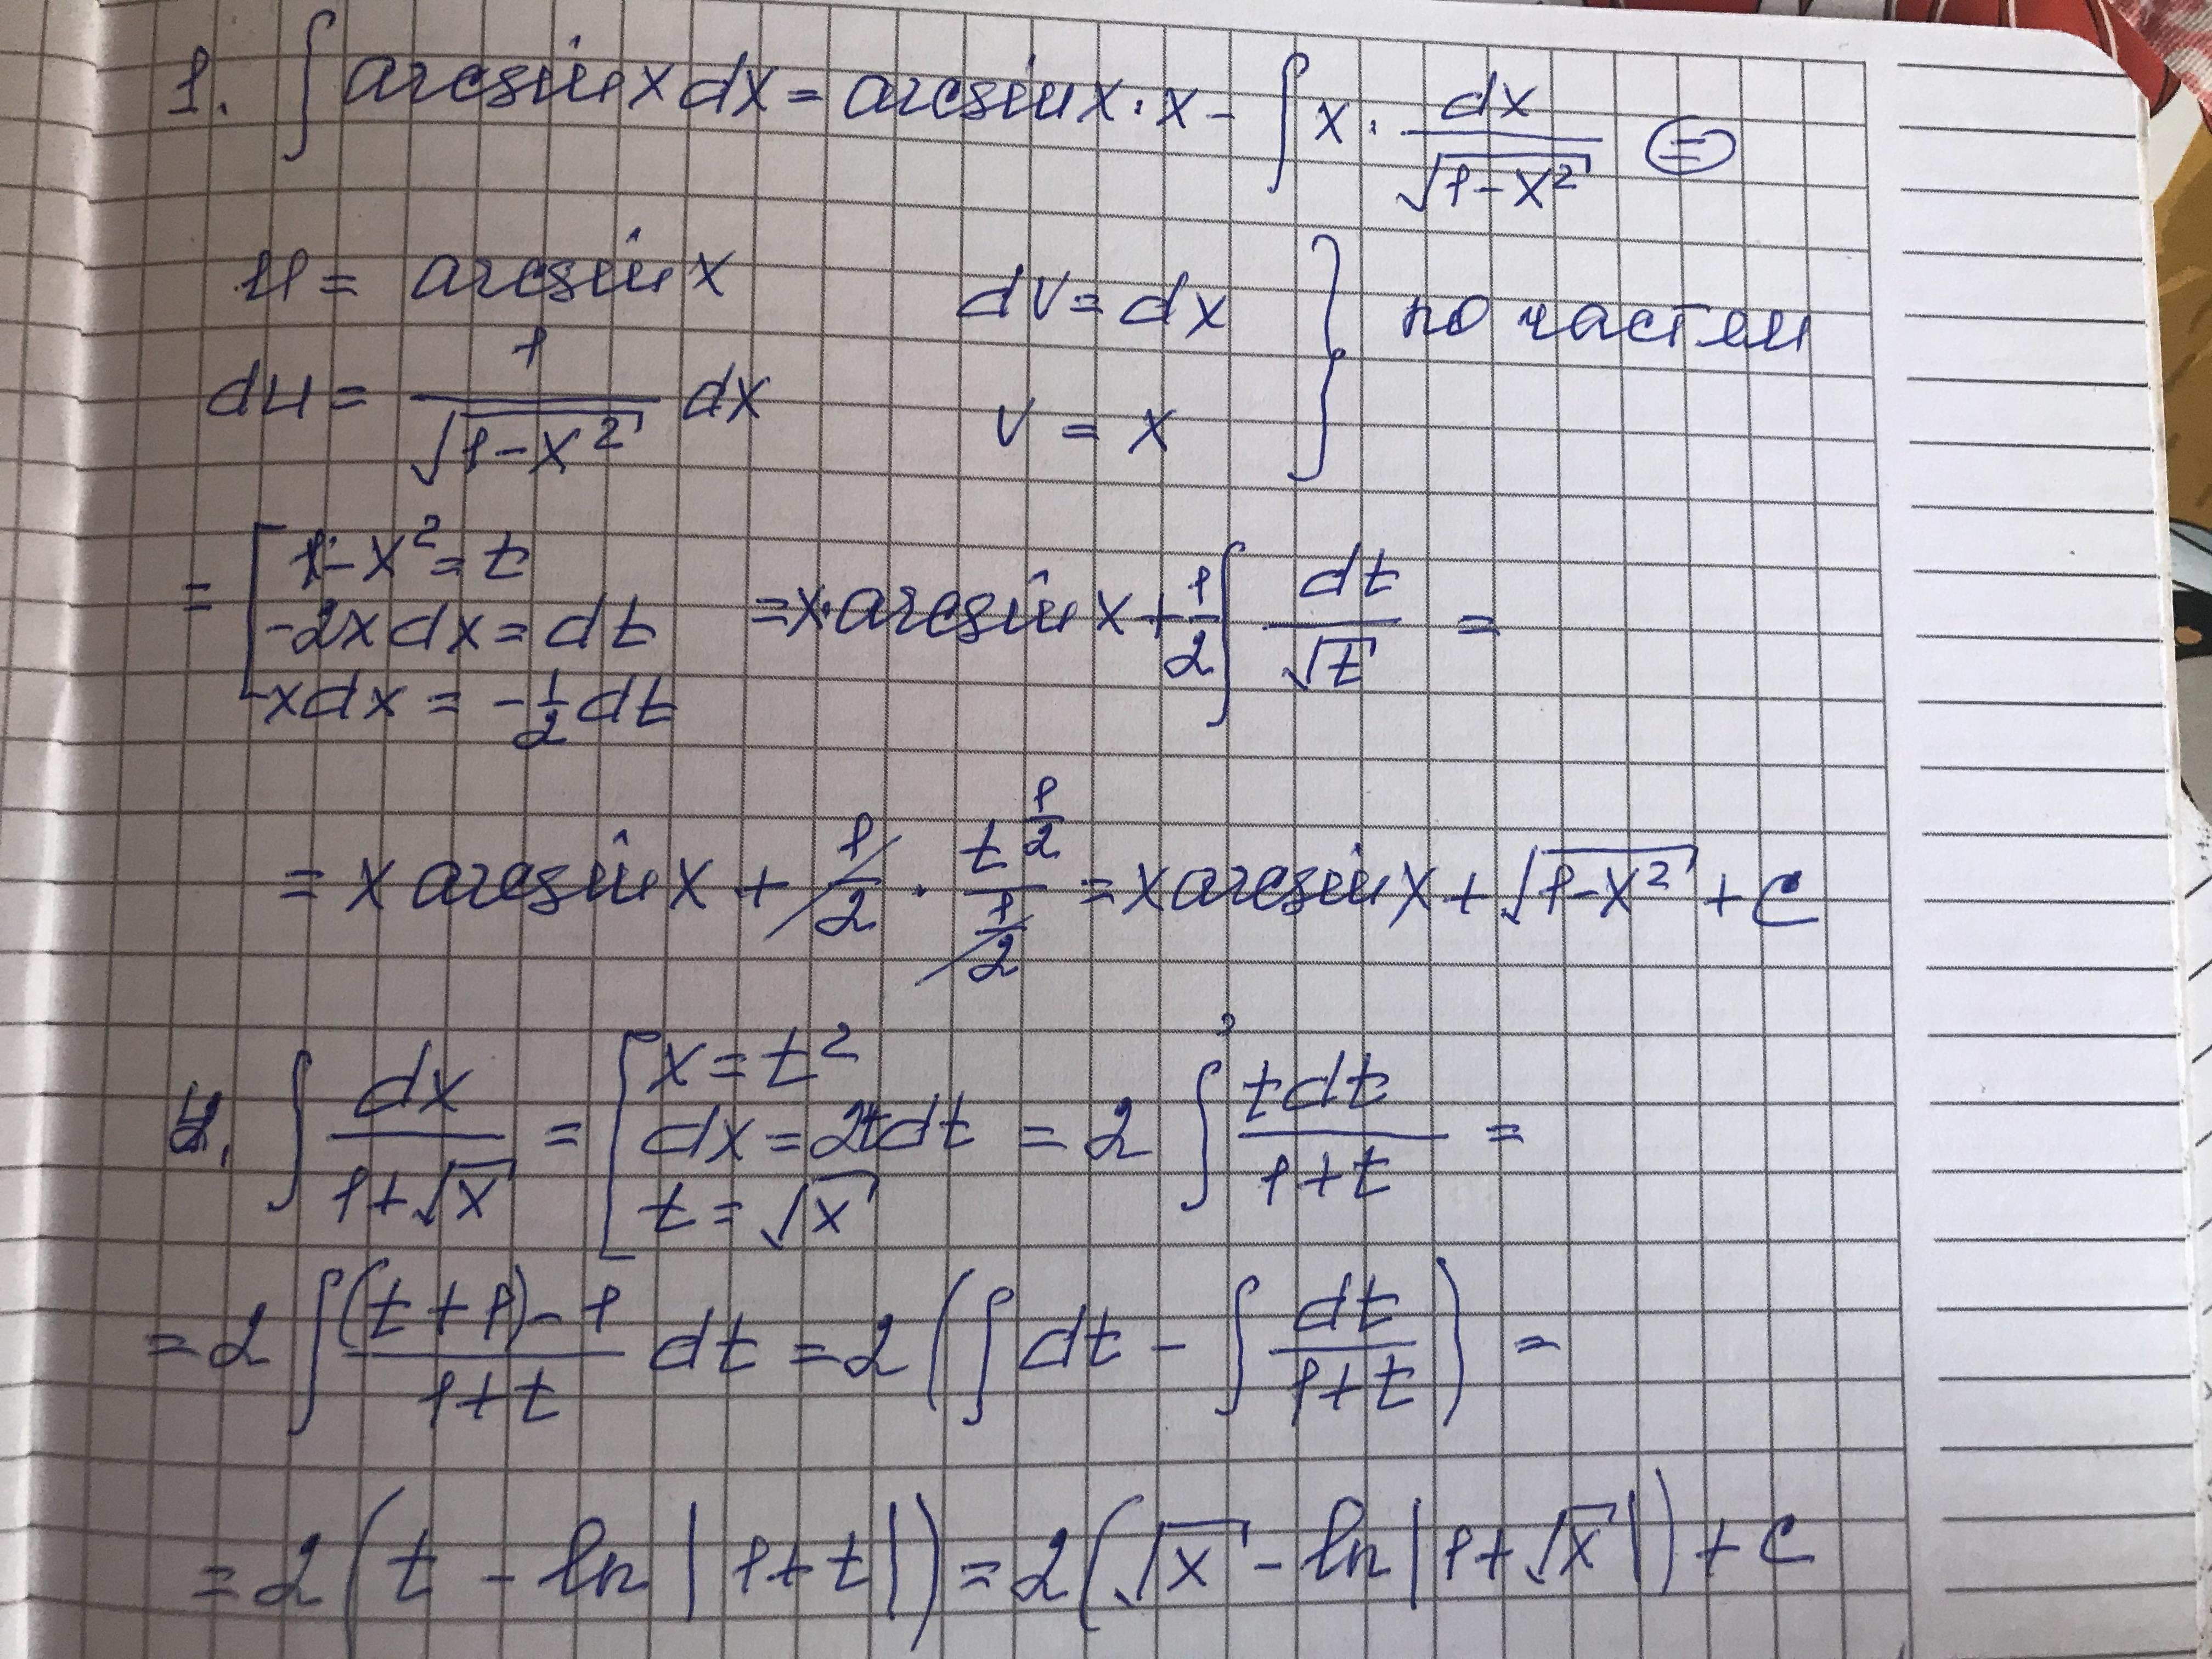 1. ∫ arcsin x dx = arcsin x · x - ∫ x · dx/√(1-x²) ⊜
u = arcsin x dv = dx } по частям
du = 1/√(1-x²) dx v = x
= [ 1-x² = t
-2x dx = dt = x·arcsin x + 1/2 ∫ dt/√t =
-xdx = -1/2 dt
= x arcsin x + 1/2 · t^(1/2)/(1/2) = x arcsin x + √(1-x²) + C
2. ∫ dx/(1+√x) = [ x = t²
dx = 2tdt = 2 ∫ tdt/(1+t) =
t = √x
= 2 ∫ ((t+1)-1)/(1+t) dt = 2 ( ∫ dt - ∫ dt/(1+t) ) =
= 2 ( t - ln |1+t| ) = 2 ( √x - ln |1+√x| ) + C